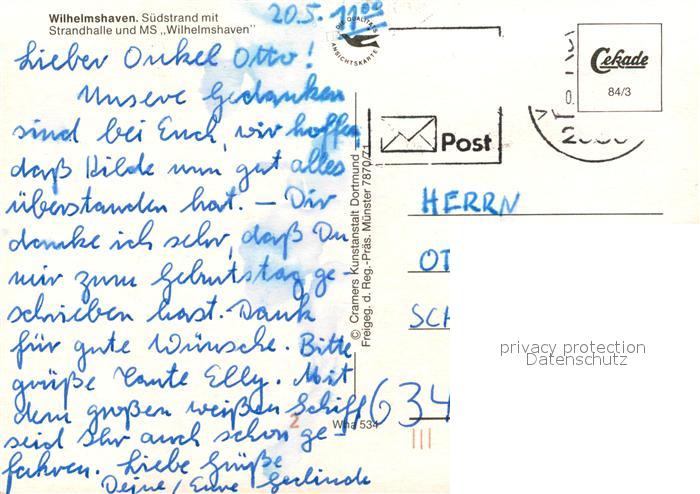 Wilhelmshaven. Südstrand mit
Strandhalle und MS „Wilhelmshaven"
20.5. 11°°
DIE QUALITÄTS
ANSICHTSKARTE
Cekade
84/3
Post
Lieber Onkel Otto!
Unsere Gedanken
sind bei Euch, wir hoffen
daß Hilde nun gut alles
überstanden hat. – Dir
danke ich sehr, daß Du
mir zum Geburtstag ge-
schrieben hast. Dank
für gute Wünsche. Bitte
grüße Tante Elly. Mit
dem großen weißen Schiff
seid Ihr auch schon ge-
fahren. Liebe Grüße
Deine/Eure Gerlinde
© Cramers Kunstanstalt Dortmund
Freigeg. d. Reg.-Präs. Münster 7870/71
Wha 534
2
HERRN
OT
SCH
634
privacy protection
Datenschutz